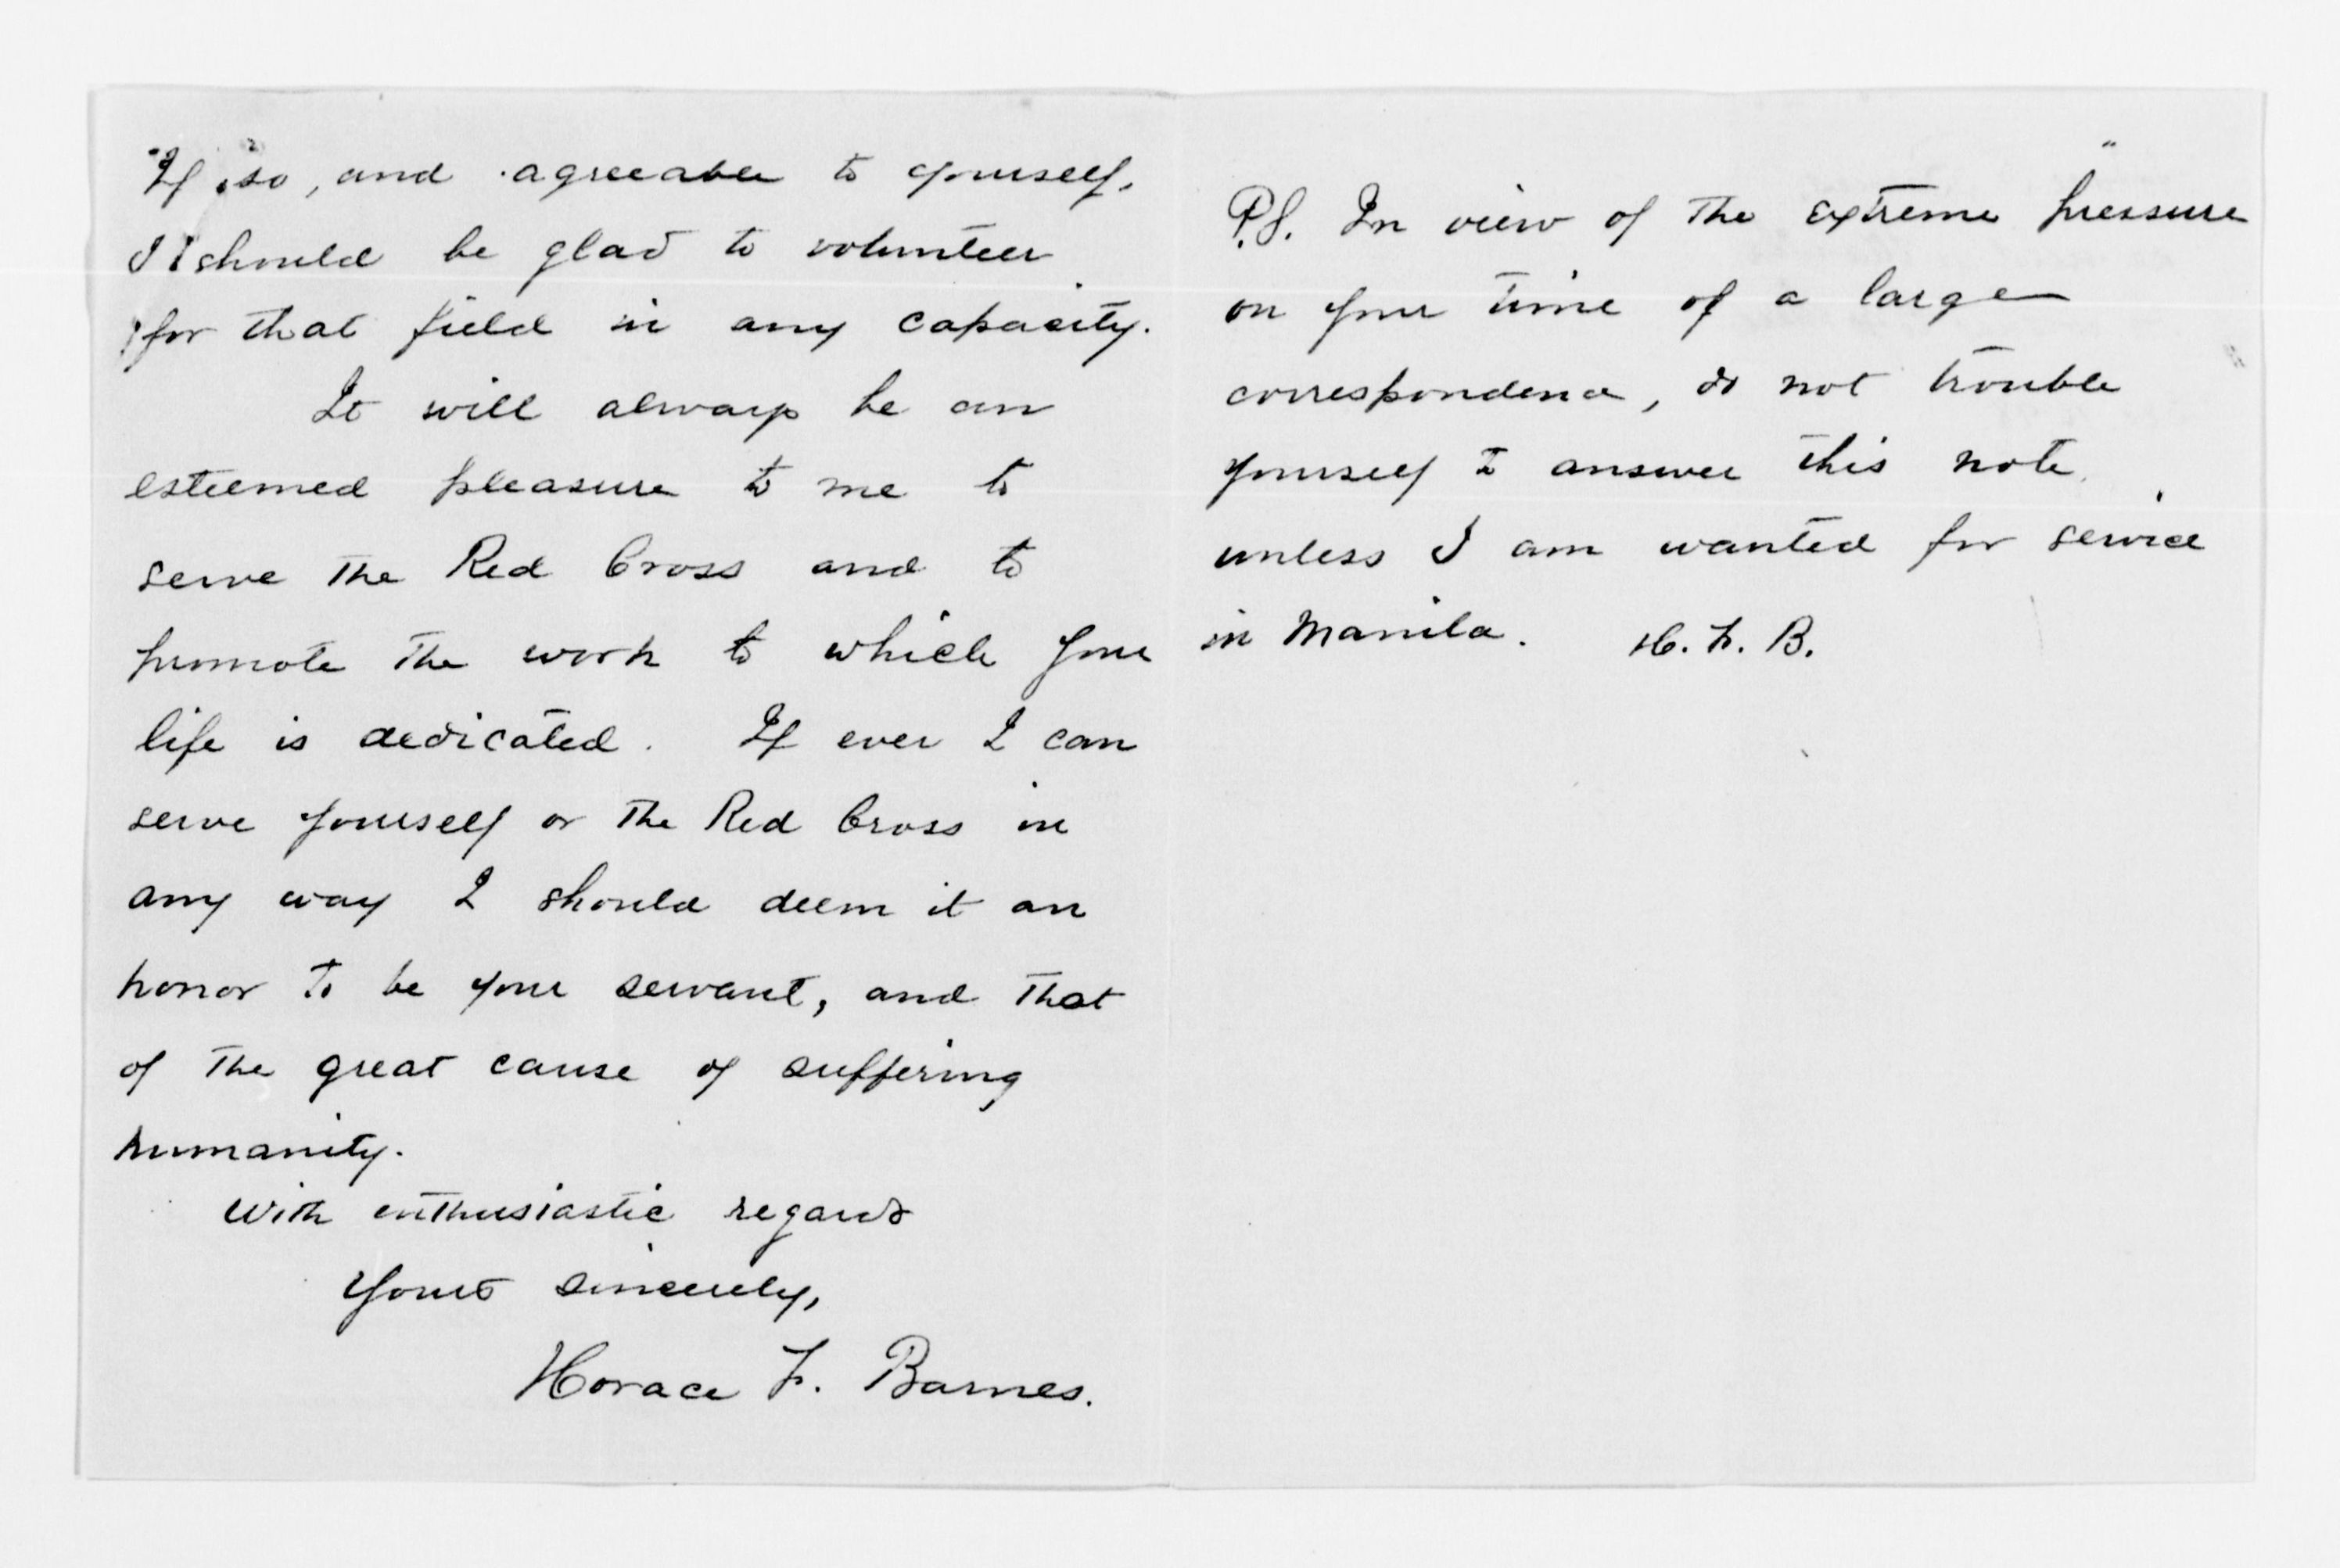 If so, and agreeable to yourself,
I should be glad to volunteer
for that field in any capacity.
It will always be an
esteemed pleasure to me to
serve the Red Cross and to
promote the work to which your
life is dedicated. If ever I can
serve yourself or the Red Cross in
any way I should deem it an
honor to be your servant, and that
of the great cause of suffering
humanity.
With enthusiastic regards
Yours sincerely,
Horace F. Barnes.
P.S. In view of the extreme pressure
on your time of a large
correspondence, do not trouble
yourself to answer this note
unless I am wanted for service
in Manila. H. F. B.